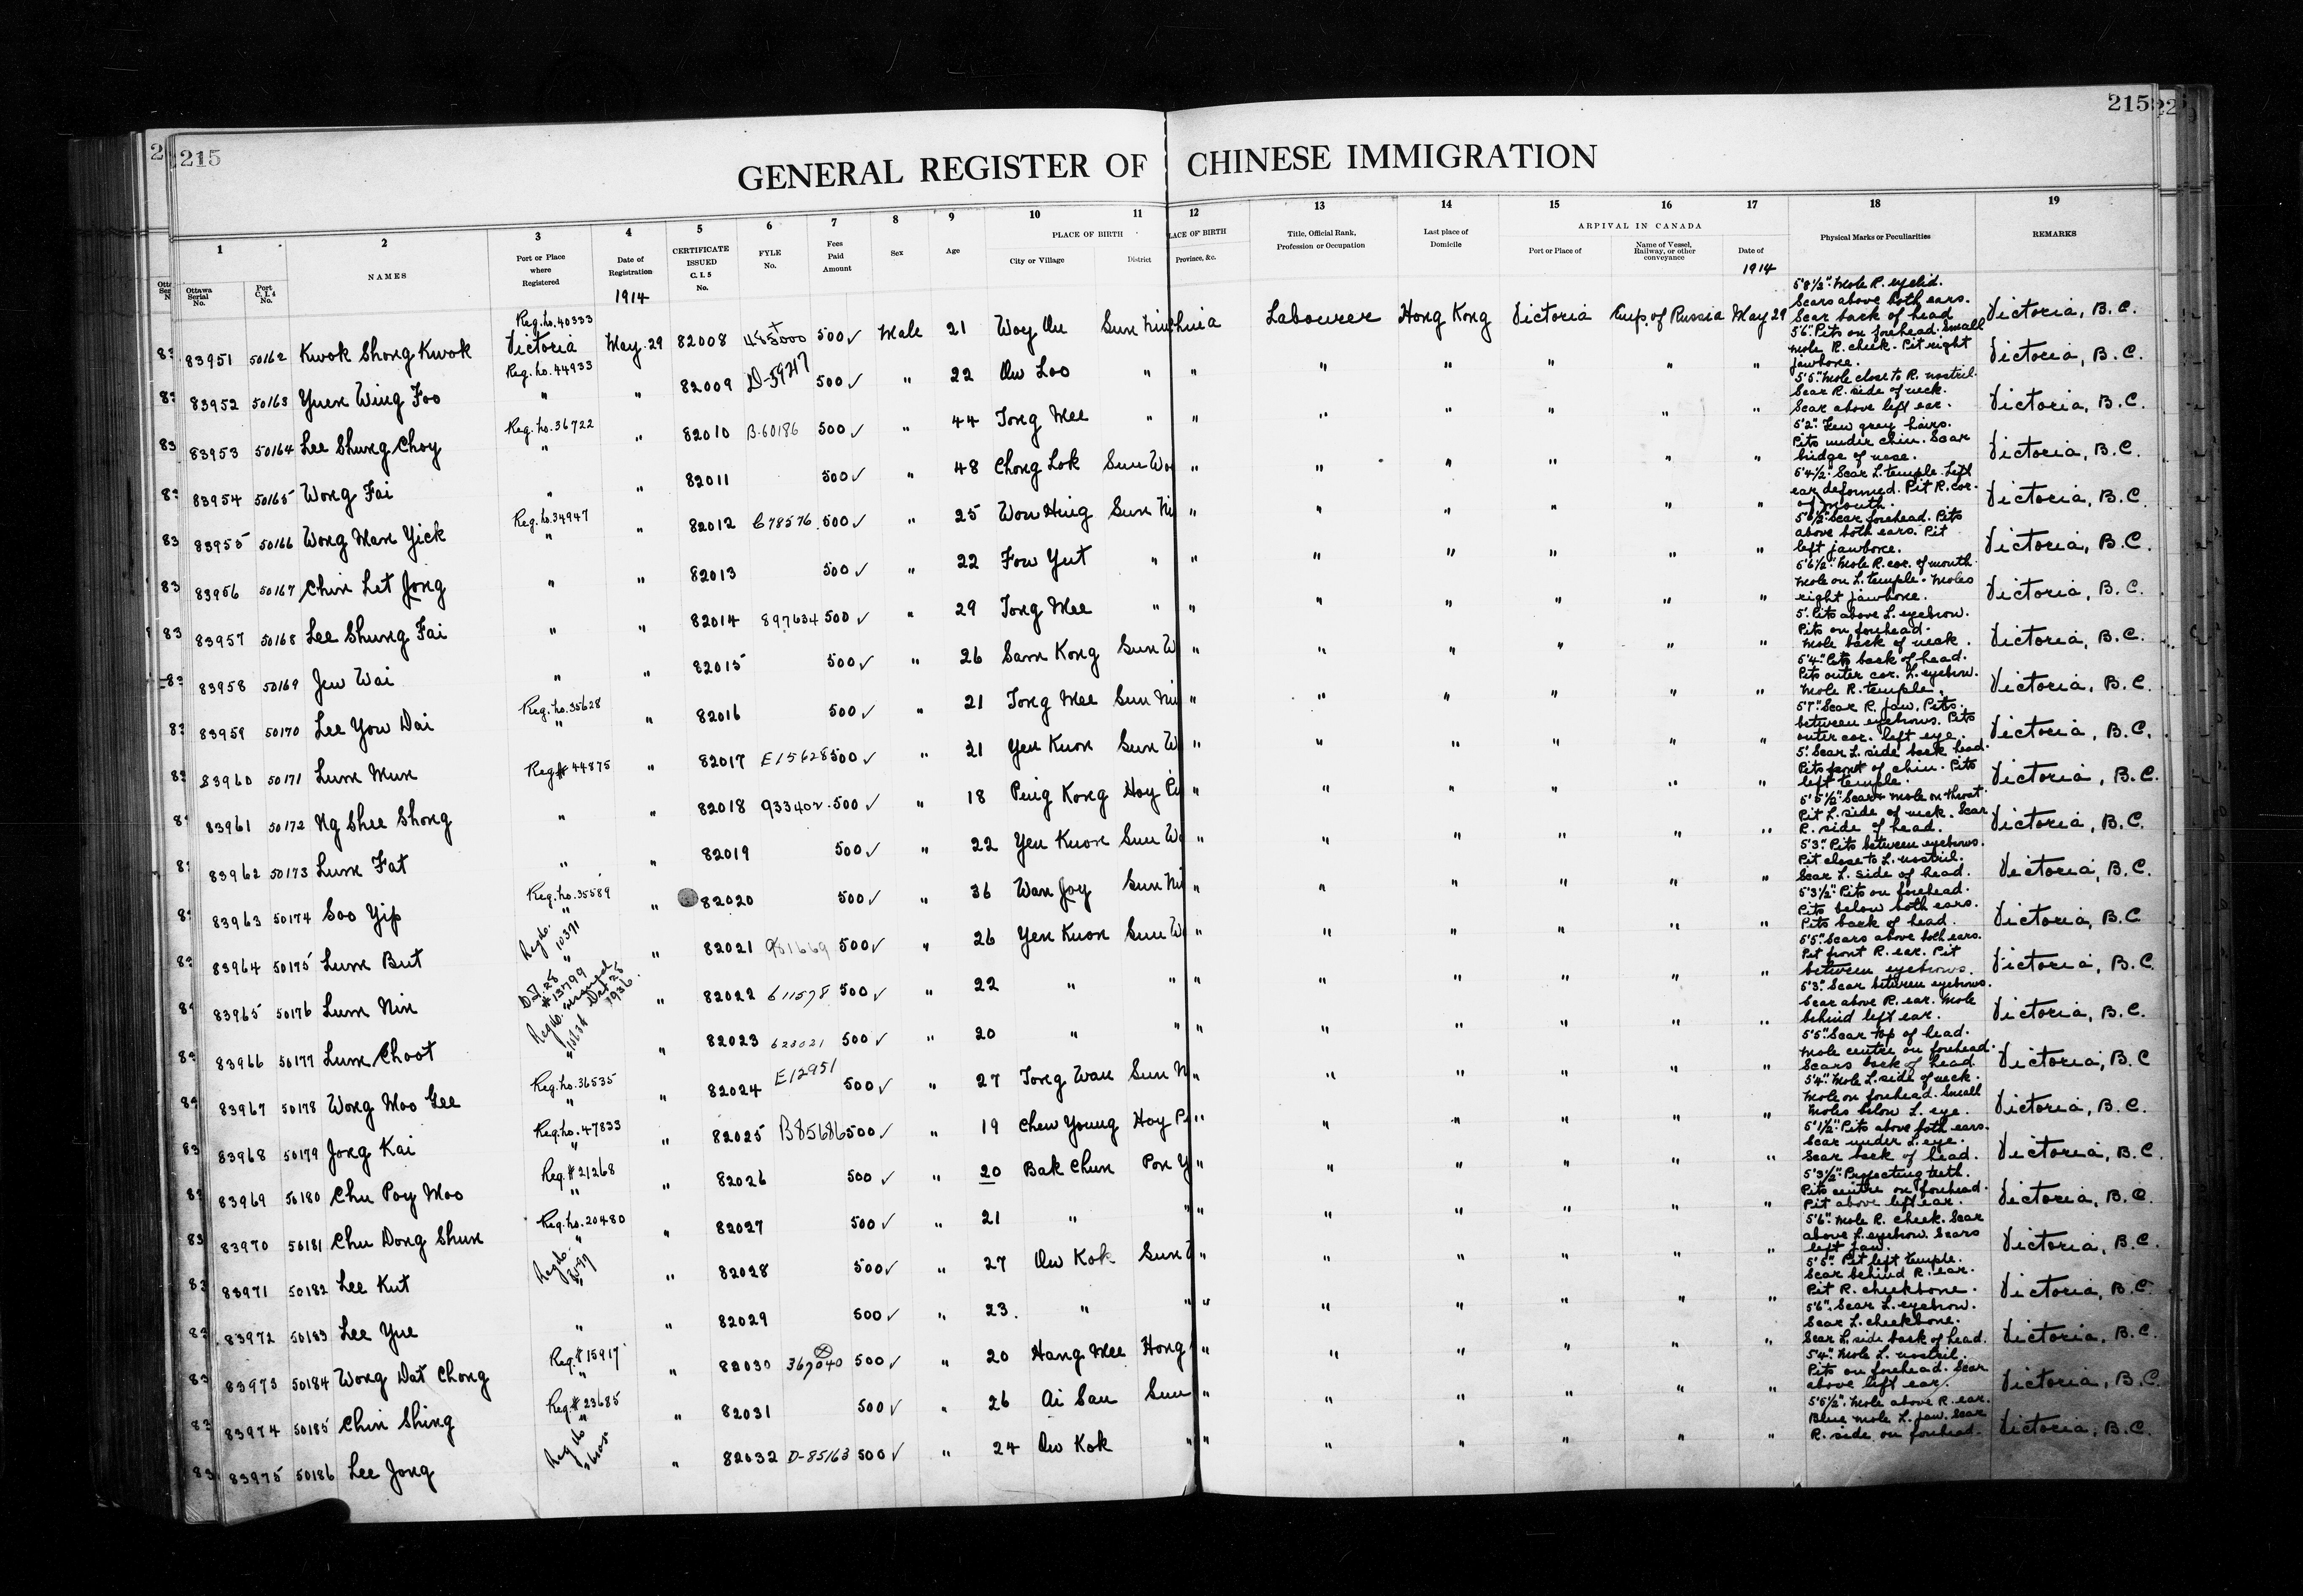 215
215
GENERAL REGISTER OF CHINESE IMMIGRATION
1 2 3 4 5 6 7 8 9 10 11 12 13 14 15 16 17 18 19
Ottawa Serial No. Port C.I.4 No. NAMES Port or Place where Registered Date of Registration CERTIFICATE ISSUED C.I.5 No. FYLE No. Fees Paid Amount Sex Age PLACE OF BIRTH City or Village District PLACE OF BIRTH Province, &c. Title, Official Rank, Profession or Occupation Last place of Domicile ARRIVAL IN CANADA Port or Place of Name of Vessel, Railway, or other conveyance Date of Physical Marks or Peculiarities REMARKS
1914 1914
83951 50162 Kwok Shong Kwok Reg. No. 40333 Victoria May 29 82008 500✓ Male 21 Woy Ou Sun China Labourer Hong Kong Victoria Emp. of Russia May 29 5'8½". Mole R. eyelid. Scars above both ears. Scar back of head Victoria, B.C.
83952 50163 Yuen Wing Foo Reg. No. 44933 " " 82009 D-59217 500✓ " 22 Ow Loo " " " " " " " 5'6". Pits on forehead. Small mole R. cheek. Pit right jawbone. Victoria, B.C.
83953 50164 Lee Shung Choy Reg. No. 36722 " " 82010 B-60186 500✓ " 44 Tong Mee " " " " " " " 5'5". Mole close to R. nostril. Scar R. side of neck. Scar above left ear. Victoria, B.C.
83954 50165 Wong Fai " " 82011 500✓ " 48 Chong Lok Sun Wo " " " " " " 5'2". Few grey hairs. Pits under chin. Scar bridge of nose. Victoria, B.C.
83955 50166 Wong Man Yick Reg. No. 34947 " " 82012 C78576 500✓ " 25 Won Hing Sun Ni " " " " " " 5'4½". Scar L. temple. Left ear deformed. Pit R. cor. of mouth. Victoria, B.C.
83956 50167 Chin Let Jong " " 82013 500✓ " 22 Fow Yut " " " " " " " 5'6½" Scar forehead. Pits above both ears. Pit left jawbone. Victoria, B.C.
83957 50168 Lee Shung Fai " " 82014 897634 500✓ " 29 Tong Mee " " " " " " " 5'6½". Mole R. cor. of mouth. Mole on L. temple. Moles right jawbone. Victoria, B.C.
83958 50169 Jew Wai " " 82015 500✓ " 26 Sam Kong Sun W " " " " " " 5'. Pits above L. eyebrow. Pits on forehead. Mole back of neck. Victoria, B.C.
83959 50170 Lee You Dai Reg. No. 35628 " " 82016 500✓ " 21 Tong Mee Sun Ni " " " " " " 5'4". Pits back of head. Pits outer cor. L. eyebrow. Mole R. temple. Victoria, B.C.
83960 50171 Lum Mun Reg # 44875 " 82017 E15628 500✓ " 21 Yen Kuon Sun W " " " " " " 5'7". Scar R. jaw. Pits between eyebrows. Pits outer cor. left eye. Victoria, B.C.
83961 50172 Ng Shee Shong " " 82018 933402 500✓ " 18 Ping Kong Hoy Pi " " " " " " 5'. Scar L. side back head. Pits front of chin. Pits left temple. Victoria, B.C.
83962 50173 Lum Fat " " 82019 500✓ " 22 Yen Kuon Sun Wo " " " " " " 5'5½". Scar & mole on throat. Pit L. side of neck. Scar R. side of head. Victoria, B.C.
83963 50174 Soo Yip Reg. No. 35589 " " 82020 500✓ " 36 Wan Joy Sun Ni " " " " " " 5'3". Pits between eyebrows. Pit close to L. nostril. Scar L. side of head. Victoria, B.C.
83964 50175 Lum But Reg No. 10371 " " 82021 981669 500✓ " 26 Yen Kuon Sun Wo " " " " " " 5'3½". Pits on forehead. Pits below both ears. Pits back of head. Victoria, B.C.
83965 50176 Lum Nin #13799 Oct 28 1936 " 82022 611578 500✓ " 22 " " " " " " " " 5'5". Scars above both ears. Pit front R. ear. Pit between eyebrows. Victoria, B.C.
83966 50177 Lum Choot Reg No. " " 82023 623021 500✓ " 20 " " " " " " " " 5'3". Scar between eyebrows. Scar above R. ear. Mole behind left ear. Victoria, B.C.
83967 50178 Wong Moo Gee Reg. No. 36535 " " 82024 E12951 500✓ " 27 Tong Wan Sun N " " " " " " 5'5". Scar top of head. Mole centre on forehead. Scars back of head. Victoria, B.C.
83968 50179 Jong Kai Reg. No. 47833 " " 82025 B85686 500✓ " 19 Chew Young Hoy P " " " " " " 5'4". Mole L. side of neck. Mole on forehead. Small moles below L. eye. Victoria, B.C.
83969 50180 Chu Poy Moo Reg. # 21268 " " 82026 500✓ " 20 Bak Chun Pon Y " " " " " " 5'1½". Pits above both ears. Scar under L. eye. Scar back of head. Victoria, B.C.
83970 50181 Chu Dong Shun Reg. No. 20480 " " 82027 500✓ " 21 " " " " " " " " 5'3½". Projecting teeth. Pits centre on forehead. Pit above left ear. Victoria, B.C.
83971 50182 Lee Kut Reg No. " " 82028 500✓ " 27 Ow Kok Sun " " " " " " 5'6". Mole R. cheek. Scar above L. eyebrow. Scars left jaw. Victoria, B.C.
83972 50183 Lee Yue " " 82029 500✓ " 23. " " " " " " " " 5'5". Pit left temple. Scar behind R. ear. Pit R. cheekbone. Victoria, B.C.
83973 50184 Wong Dat Chong Reg. # 15917 " " 82030 367040 500✓ " 20 Hang Mee Hong " " " " " " 5'6". Scar L. eyebrow. Scar L. cheekbone. Scar L. side back of head. Victoria, B.C.
83974 50185 Chin Shing Reg. # 23685 " " 82031 500✓ " 26 Ai San Sun " " " " " " 5'4". Mole L. nostril. Pits on forehead. Scar above left ear. Victoria, B.C.
83975 50186 Lee Jong Reg No " " 82032 D-85163 500✓ " 24 Ow Kok " " " " " " " 5'5½". Mole above R. ear. Blue mole L. jaw. Scar R. side on forehead. Victoria, B.C.